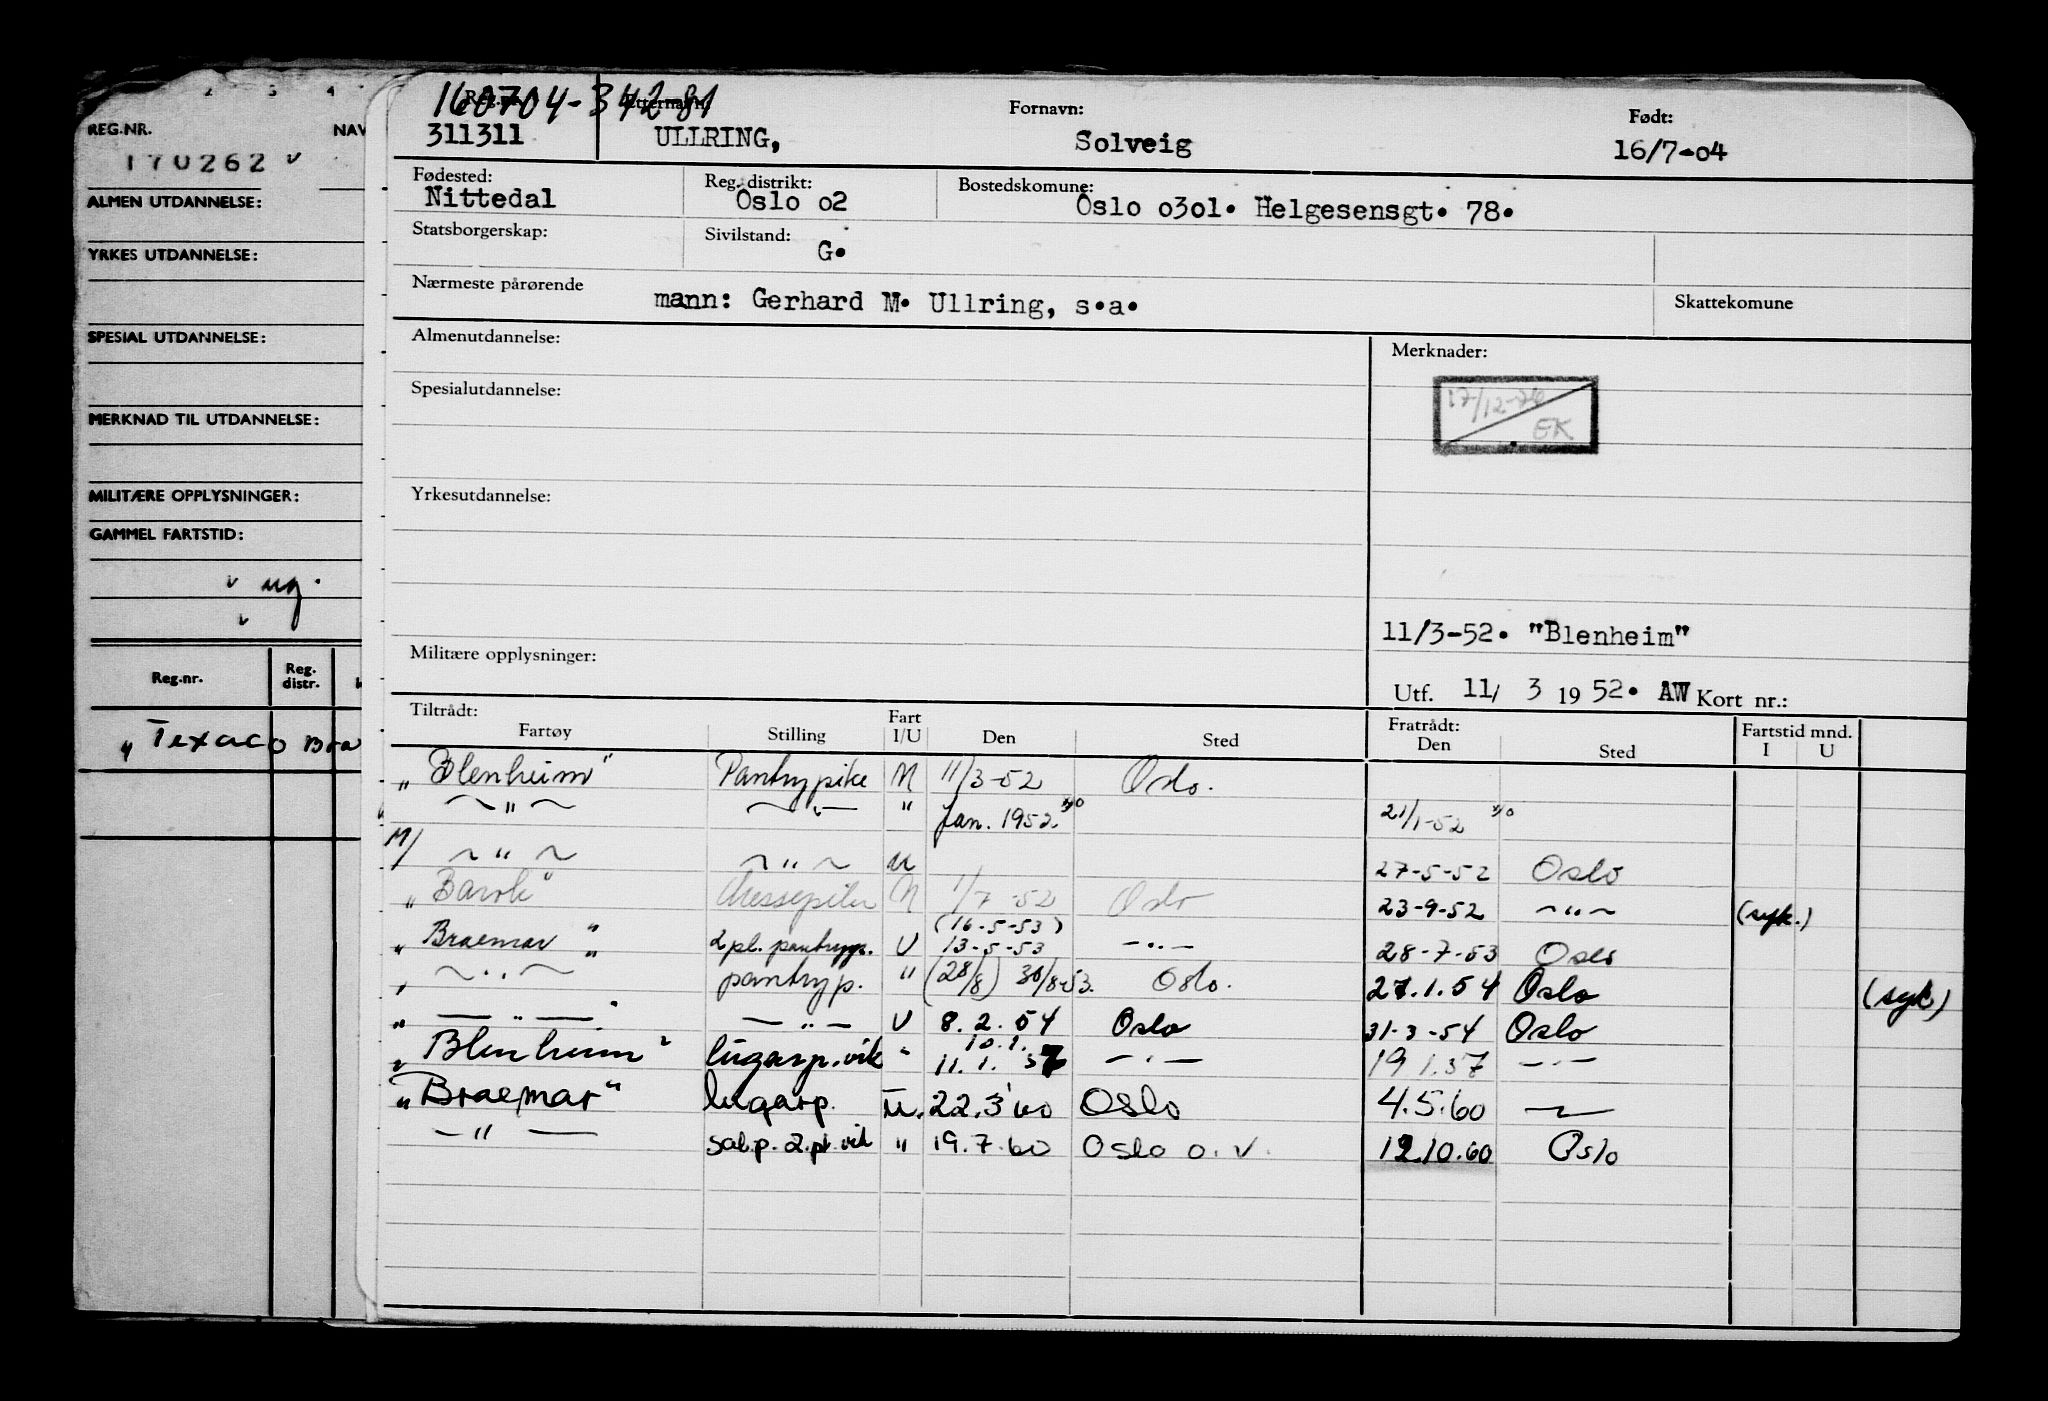 2 3 4
REG.NR. NAV
170262 v
ALMEN UTDANNELSE:
YRKES UTDANNELSE:
SPESIAL UTDANNELSE:
MERKNAD TIL UTDANNELSE:
MILITÆRE OPPLYSNINGER:
GAMMEL FARTSTID:
v ug.
v
Reg.nr. Reg. distr.
"Texaco Bra
160704-342-81
Etternavn: Fornavn: Født:
311311 ULLRING, Solveig 16/7-04
Fødested: Reg. distrikt: Bostedskomune:
Nittedal Oslo o2 Oslo o3o1. Helgesensgt. 78.
Statsborgerskap: Sivilstand:
G.
Nærmeste pårørende mann: Gerhard M. Ullring, s.a. Skattekomune
Almenutdannelse: Merknader:
Spesialutdannelse: 17/12-76
EK
Yrkesutdannelse:
11/3-52. "Blenheim"
Militære opplysninger:
Utf. 11/ 3 19 52. AW Kort nr.:
Tiltrådt: Fart Fratrådt: Fartstid mnd.
Fartøy Stilling I/U Den Sted Den Sted I U
"Blenheim" Pantrypike N 11/3-52 Oslo.
— " — — " — " Jan. 1952 21/1-52
M/ — " — — " — u 27-5-52 Oslo
"Barok" Messepike N 1/7-52 Oslo 23-9-52 — " — (syk.)
(16-5-53)
"Braemar" 2 pl. pantryp. U 13-5-53 — " — 28-7-53 Oslo
" — " — pantryp. " (28/8) 30/8-53. Oslo. 27.1.54 Oslo (syk)
" — " — — " — U 8.2.54 Oslo 31-3-54 Oslo
10.1.
"Blenheim" lugarp.vik " 11.1.57 — " — 19 1.57 — " —
"Braemar" lugarp. U. 22.3 60 Oslo 4.5.60 —
— " — sal.p. 2.pl. vik " 19.7.60 Oslo o. v. 12.10.60 Oslo